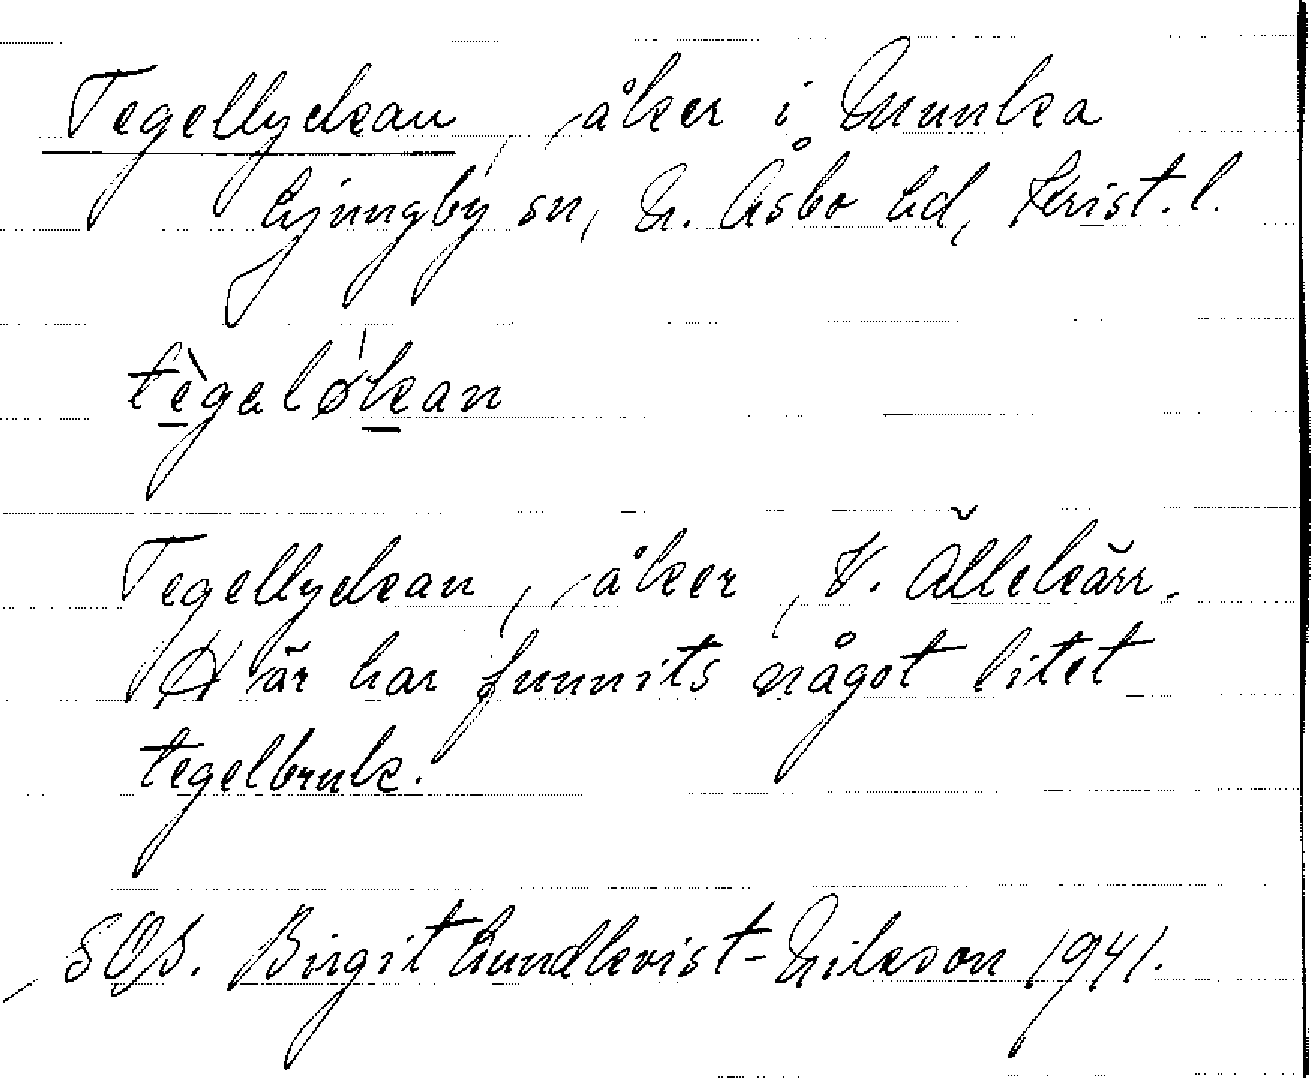 Tegellyckan, åker i Munka
Ljungby sn, N. Åsbo hd, Krist. l.
tègaløkan
Tegellyckan, åker, V. Ällekärr.
Här har funnits något litet
tegelbruk.
SOS. Birgit Lundkvist-Nilsson 1941.